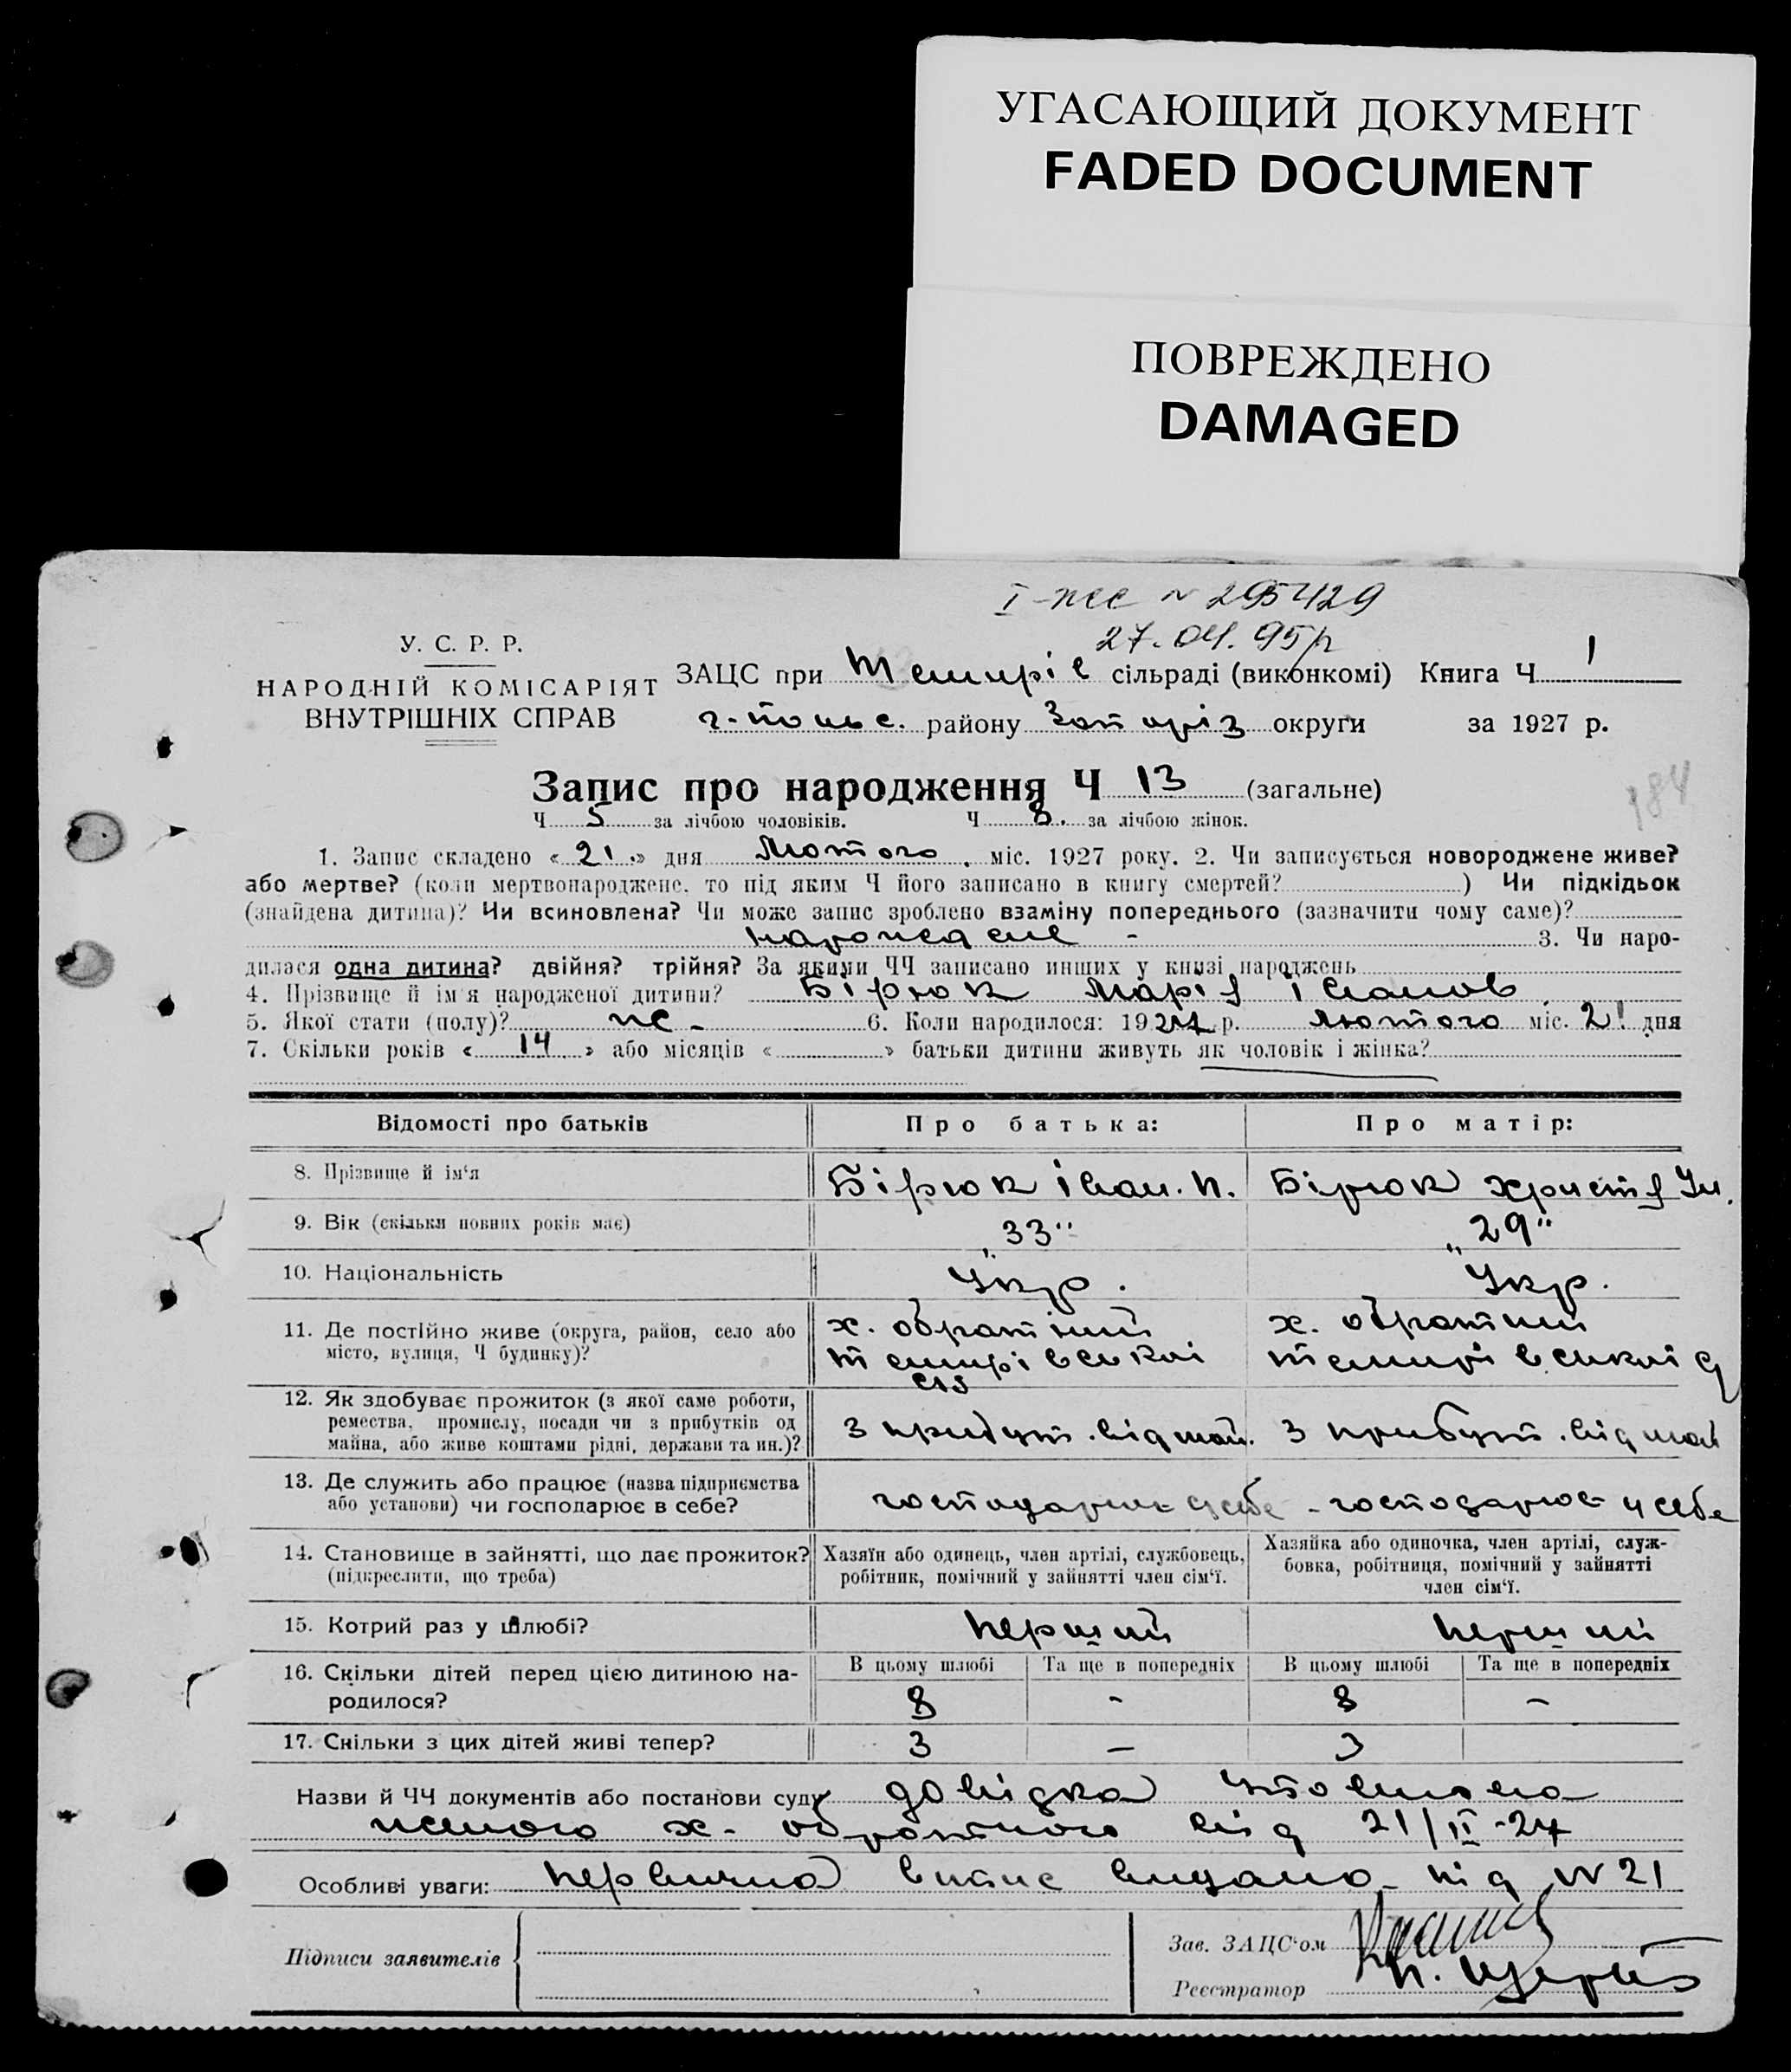 УГАСАЮЩИЙ ДОКУМЕНТ
FADED DOCUMENT
ПОВРЕЖДЕНО
DAMAGED
№ 295429
27.04.95р
У. С. Р. Р.
НАРОДНІЙ КОМІСАРІЯТ
ВНУТРІШНІХ СПРАВ
ЗАЦС при Темирів сільраді (виконкомі) Книга Ч 1
г-польс. району Запоріз округи за 1927 р.
Запис про народження Ч 13 (загальне)
184
Ч 5 за лічбою чоловіків. Ч 8. за лічбою жінок.
1. Запис складено « 21 » дня Лютого міс. 1927 року. 2. Чи записується новороджене живе?
або мертве? (коли мертвонароджене, то під яким Ч його записано в книгу смертей? ) Чи підкідьок
(знайдена дитина)? Чи всиновлена? Чи може запис зроблено взаміну попереднього (зазначити чому саме)?
народжене - 3. Чи наро-
дилася одна дитина? двійня? трійня? За якими ЧЧ записано инших у книзі народжень
4. Прізвище й ім'я народженої дитини? Бірюк Марія Іванов.
5. Якої стати (полу)? ж - 6. Коли народилося: 1927 р. лютого міс. 21 дня
7. Скільки років « 14 » або місяців « » батьки дитини живуть як чоловік і жінка?
Відомості про батьків Про батька: Про матір:
8. Прізвище й ім'я Бірюк Іван. П. Бірюк Христя Ул.
9. Вік (скільки повних років має) „33" „29"
10. Національність Укр. Укр.
11. Де постійно живе (округа, район, село або х. обратний х. обратний
місто, вулиця, Ч будинку)? темирівської темирівської
с/s
12. Як здобуває прожиток (з якої саме роботи,
ремества, промислу, посади чи з прибутків од 3 прибут. від май. 3 прибут. від май
майна, або живе коштами рідні, держави та ин.)?
13. Де служить або працює (назва підприємства
або установи) чи господарює в себе? господарює у себе - господарює у себе
14. Становище в зайнятті, що дає прожиток? Хазяїн або одинець, член артілі, службовець, Хазяйка або одиночка, член артілі, служ-
(підкреслити, що треба) робітник, помічний у зайнятті член сім'ї. бовка, робітниця, помічний у зайнятті
член сім'ї.
15. Котрий раз у шлюбі? перший перший
16. Скільки дітей перед цією дитиною на- В цьому шлюбі Та ще в попередніх В цьому шлюбі Та ще в попередніх
родилося? 8 - 8 -
17. Скільки з цих дітей живі тепер? 3 - 3
Назви й ЧЧ документів або постанови суду довідка уповнова
женого х. обратного від 21/II-27
Особливі уваги: первична випис видано під N 21
Підписи заявителів
Зав. ЗАЦС'ом
Реєстратор